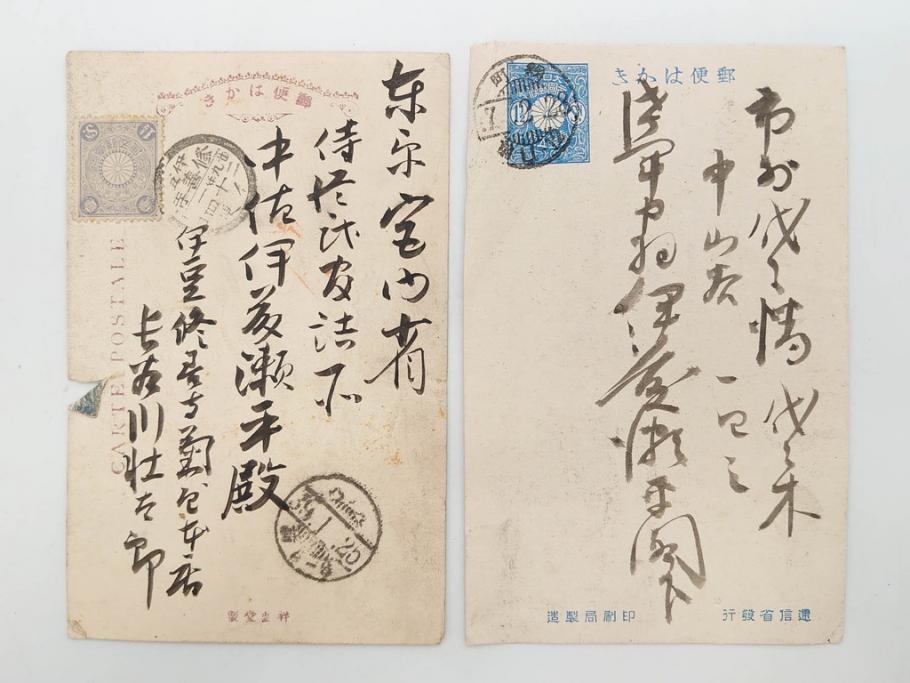 郵便はかき
東京宮内省
侍従武官詰所
中佐伊藤瀬平殿
伊豆修善寺菊屋本店
長谷川壮太郎
CARTE POSTALE
郵便はかき
市外代々幡代々木
中山谷一四三
陸軍中将伊藤瀬平閣下
遞信省發行
印刷局製造